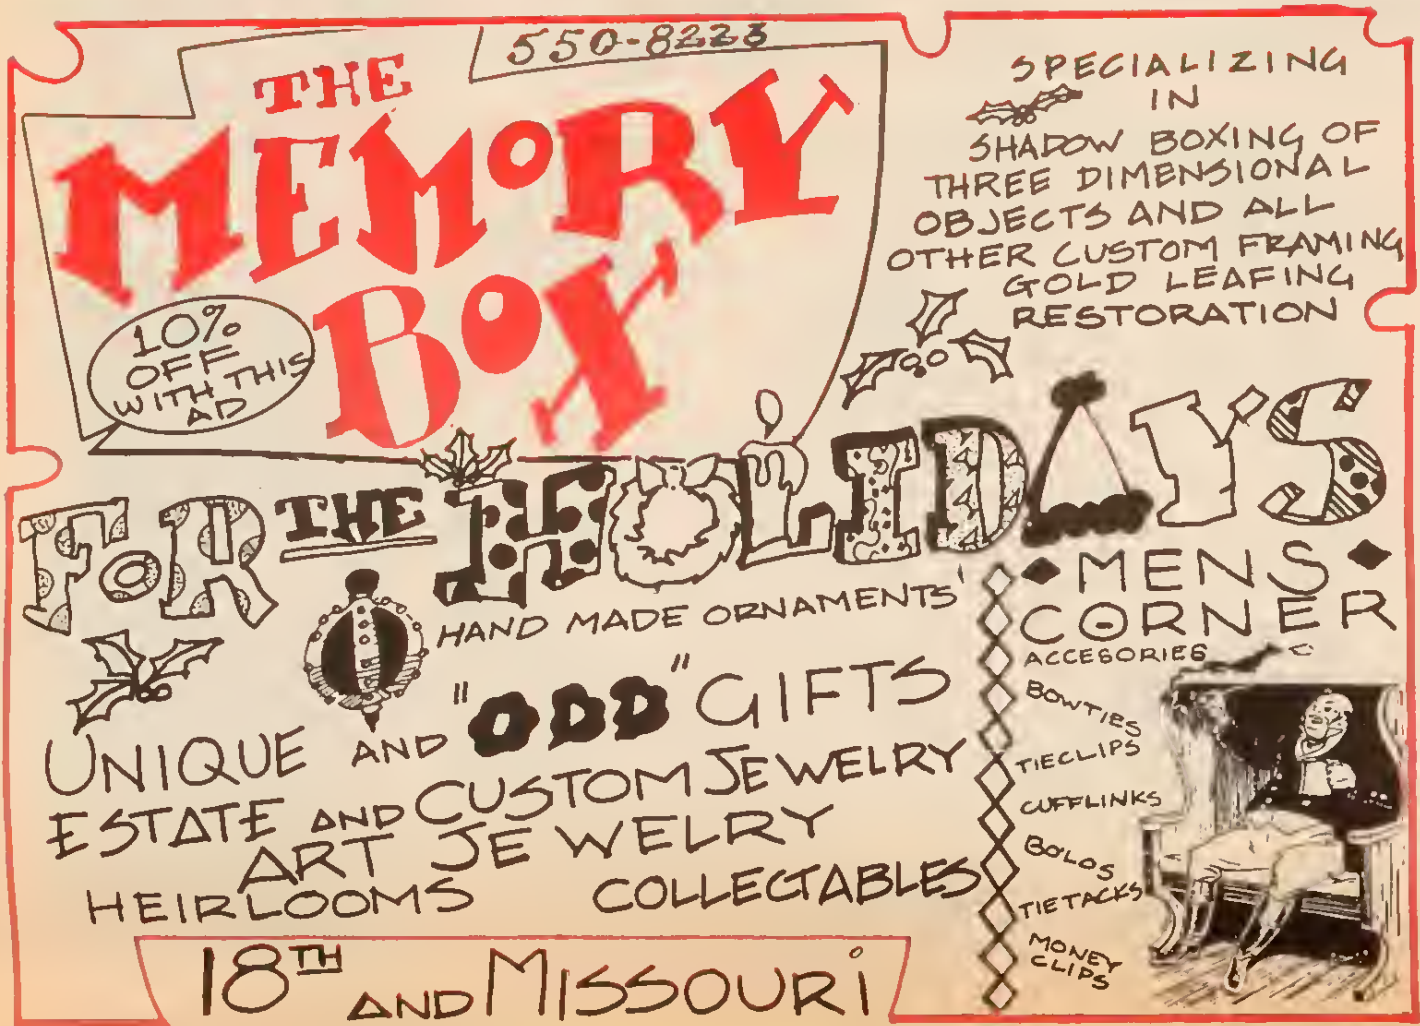 550-8223
THE
MEMORY
BOX
10%
OFF
WITH THIS
AD
SPECIALIZING
IN
SHADOW BOXING OF
THREE DIMENSIONAL
OBJECTS AND ALL
OTHER CUSTOM FRAMING
GOLD LEAFING
RESTORATION
FOR THE HOLIDAY'S
HAND MADE ORNAMENTS
UNIQUE AND "ODD" GIFTS
ESTATE AND CUSTOM JEWELRY
ART JEWELRY
HEIRLOOMS COLLECTABLES
MENS
CORNER
ACCESORIES
BOWTIES
TIECLIPS
CUFFLINKS
BOLOS
TIETACKS
MONEY
CLIPS
18TH AND MISSOURI